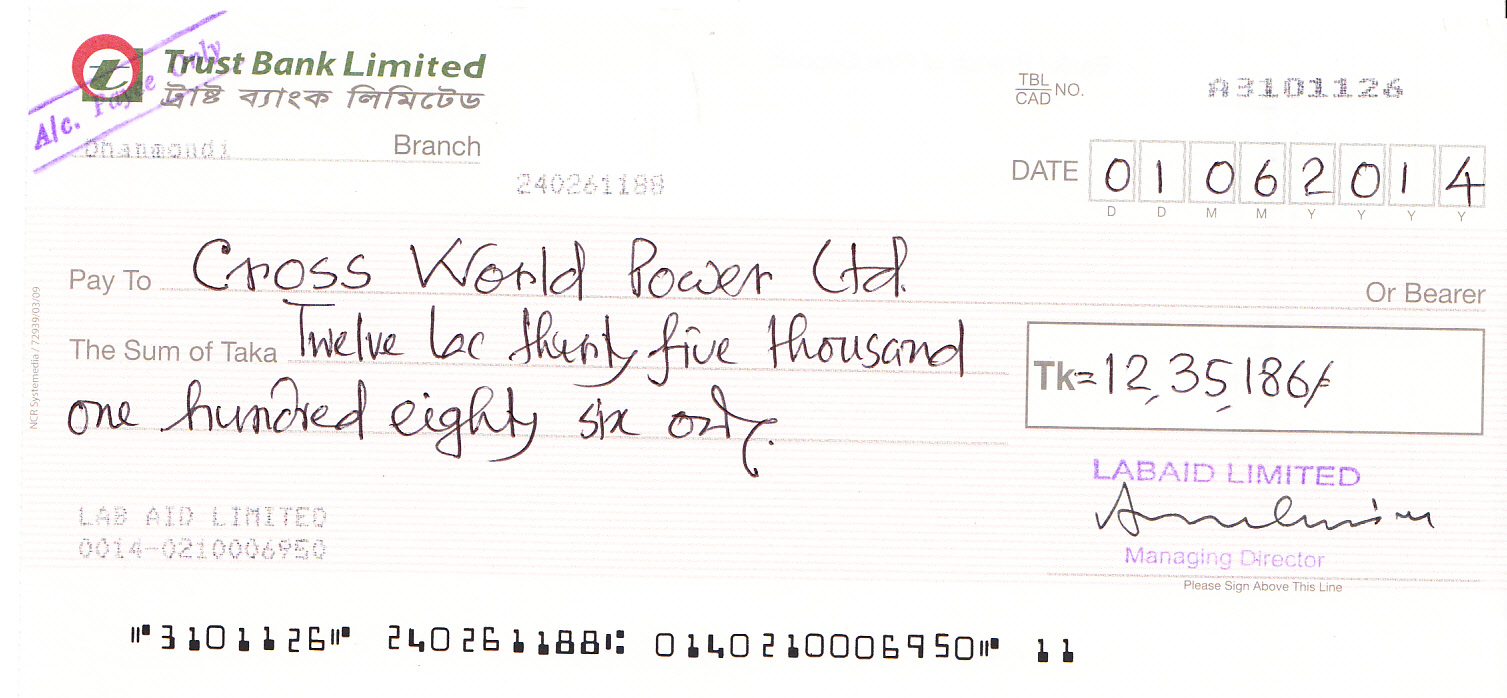 Trust Bank Limited
ট্রাষ্ট ব্যাংক লিমিটেড
A/c. Payee Only
Dhanmondi Branch
240261188
TBL
CAD NO. A3101126
DATE 0 1 0 6 2 0 1 4
D D M M Y Y Y Y
Pay To Cross World Power Ltd.
Or Bearer
The Sum of Taka Twelve lac thirty five thousand
one hundred eighty six only.
Tk=12,35,186/=
LABAID LIMITED
Managing Director
Please Sign Above This Line
LAB AID LIMITED
0014-0210006950
NCR Systemedia / 72939/03/09
⑈3101126⑈ 240261188⑆ 0140210006950⑈ 11